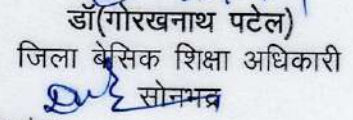 डॉ(गोरखनाथ पटेल)
जिला बेसिक शिक्षा अधिकारी
सोनभद्र